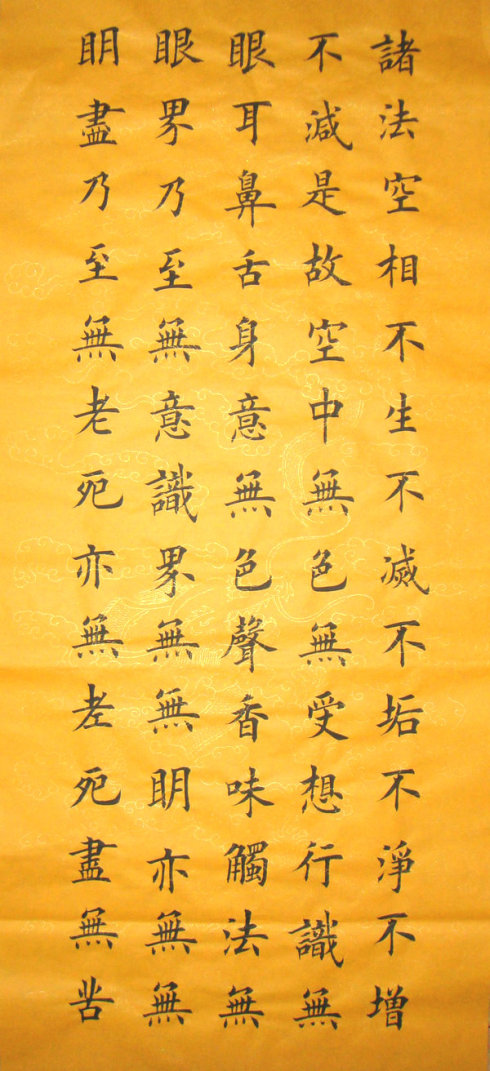 諸法空相不生不滅不垢不淨不增
不減是故空中無色無受想行識無
眼耳鼻舌身意無色聲香味觸法無
眼界乃至無意識界無無明亦無無
明盡乃至無老死亦無老死盡無苦